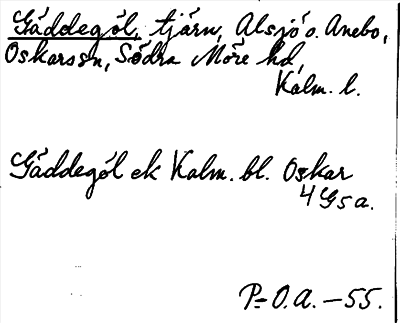 Gäddegöl, tjärn, Alsjö o. Anebo,
Oskarssn, Södra Möre hd,
Kalm. l.
Gäddegöl ek Kalm. bl. Oskar
4 G5a.
P-O.A. -55.